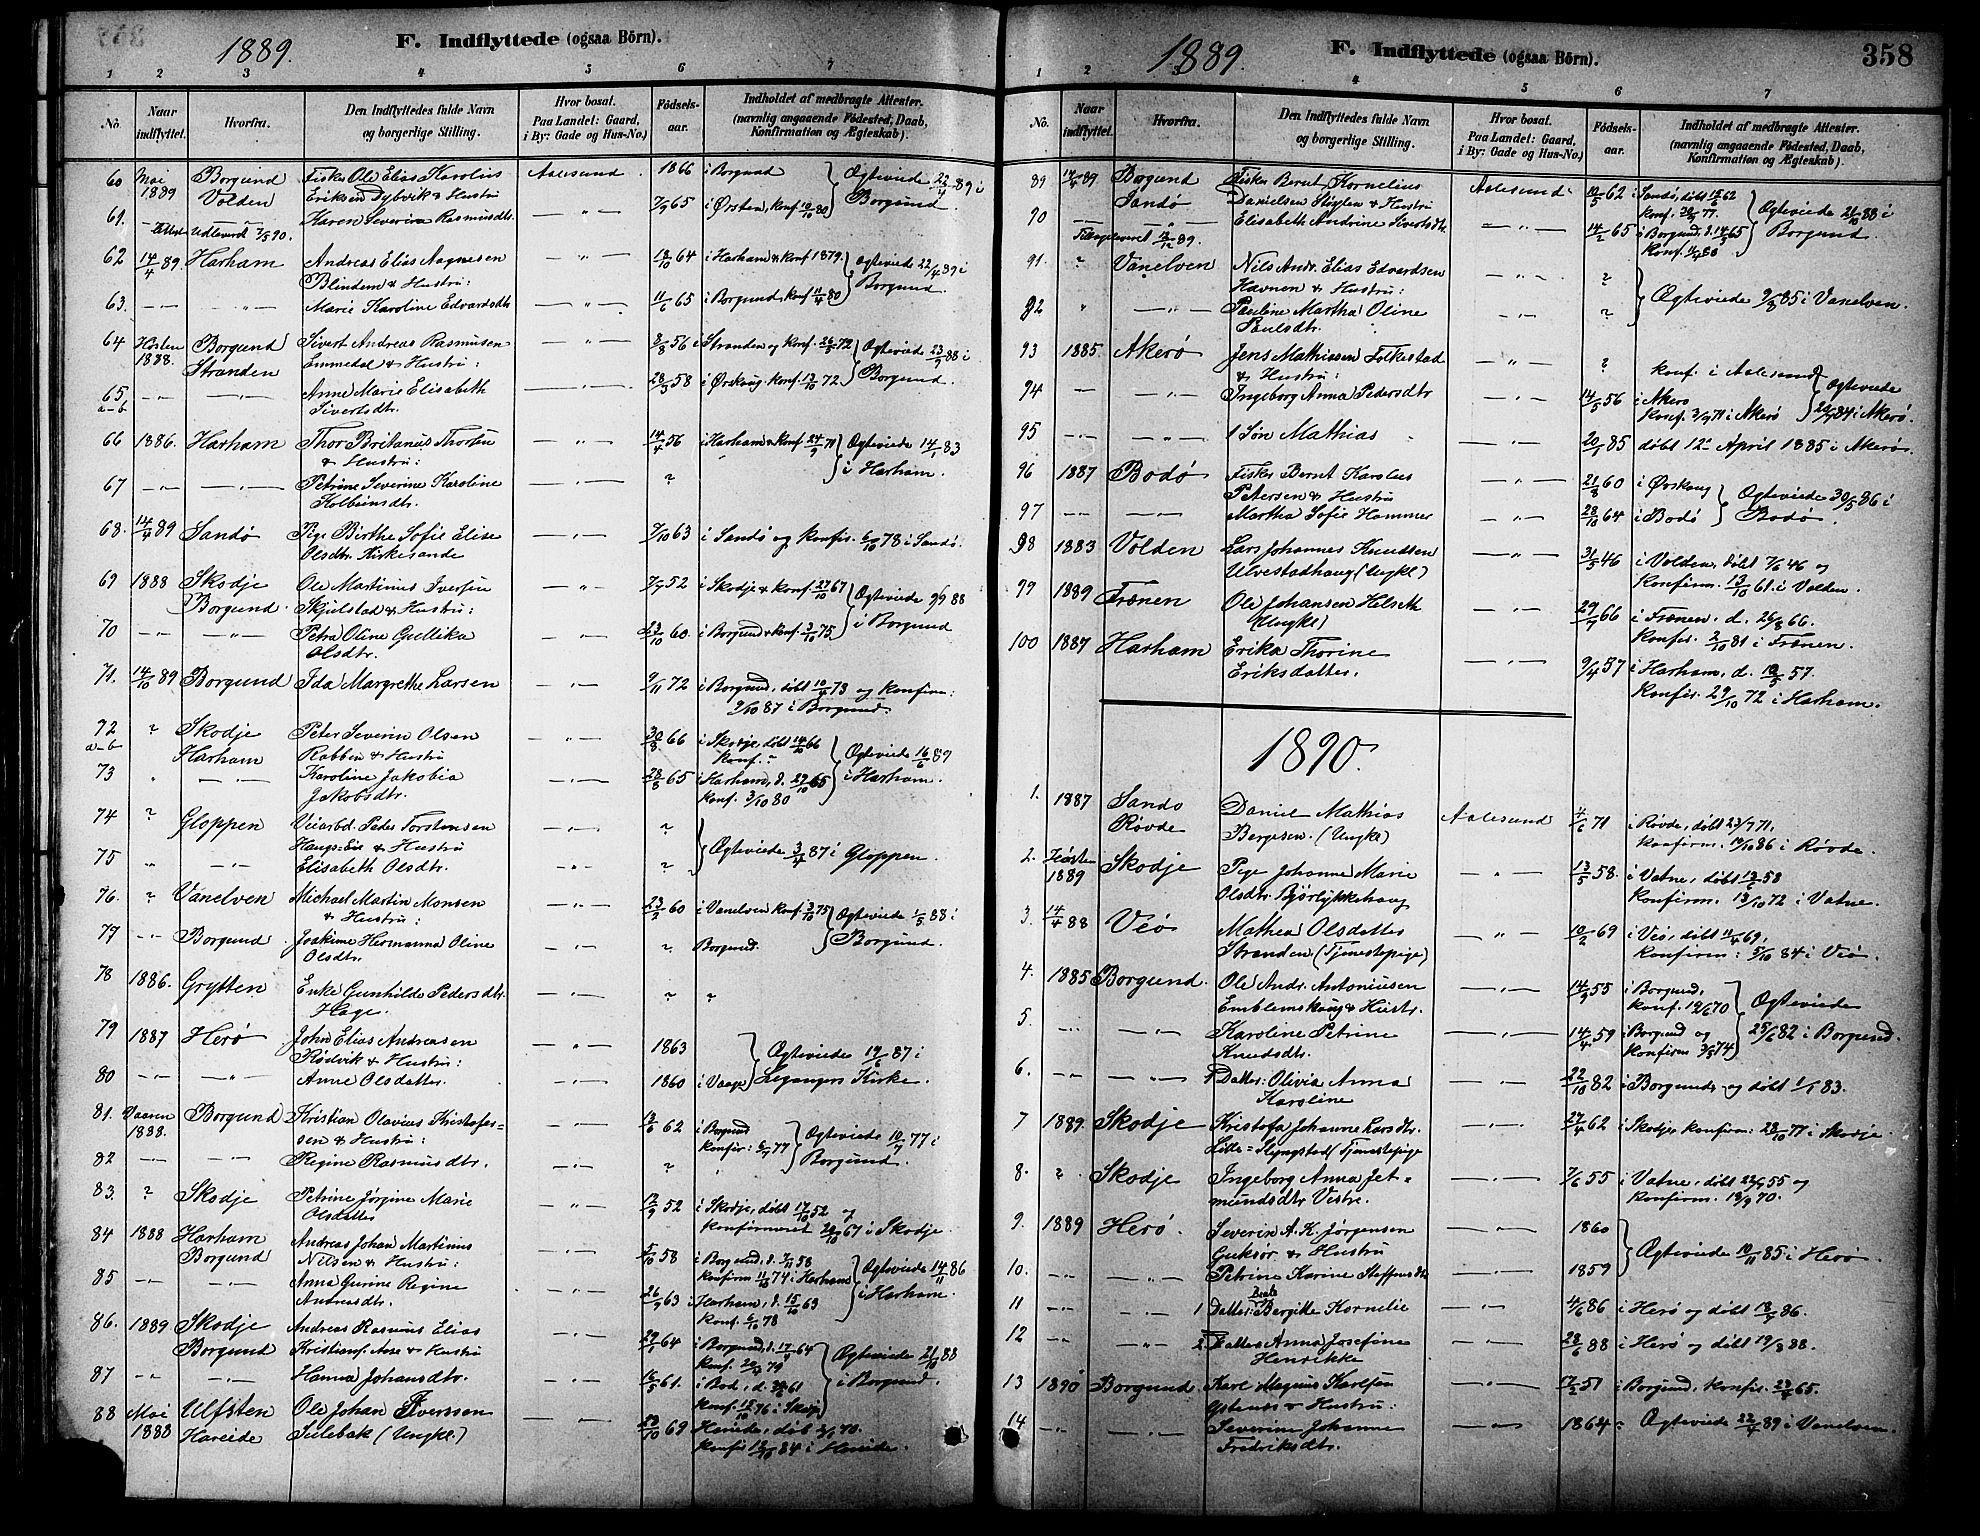 1889.
F. Indflyttede (ogsaa Börn).
1 2 3 4 5 6 7
No. Naar indflyttet. Hvorfra. Den Indflyttedes fulde Navn og borgerlige Stilling. Hvor bosat. Paa Landet: Gaard, i By: Gade og Hus-No.) Fødsels-aar. Indholdet af medbragte Attester. (navnlig angaaende Fødested, Daab, Konfirmation og Ægteskab).
60 Mai 1889 Borgund Volden Fisker Ole Elias Karolius Eriksen Dybvik & Hustru Aalesund 1866 i Borgund Ægteviede 22/4 89 i Borgund
61. Karen Severine Rasmusdtr. 7/9 65 i Ørsten, konf. 10/10 80
Attest Udleveret 7/5 90.
62 14/4 89 Harham Andreas Elias Aagnesen Blindem & Hustru: 18/10 64 i Harham & konf 1879. Ægteviede 22/4 89 i Borgund.
63. Marie Karoline Edvardsdtr 11/6 65 i Borgund, konf 11/4 80
64 Høsten 1888. Borgund Stranden Sivert Andreas Rasmussen Emmedal & Hustru: 3/8 56 i Stranden og konf. 26/5 72 Ægteviede 23/9 88 i Borgund.
65 a-b Anne Marie Elisabeth Sivertsdtr. 28/3 58 i Ørskoug. konf. 13/10 72
66 1886. Harham Thor Britanus Thorsen & Hustru: 14/4 56 i Harham & konf 24/9 71 Ægteviede 14/1 83 i Harham.
67 Petrine Severine Karoline Kolbeinsdtr. ?
68. 14/4 89 Sandø Pige Birthe Sofie Elise Olsdtr. Kirkesande 7/10 63 i Sandø og konfir. 6/10 78 i Sandø.
69 1888 Skodje Borgund. Ole Martinius Iversen Skjelstad & Hustru: 7/9 52 i Skodje & konf. 27/10 67 Ægteviede 9/9 88 i Borgund
70 Petra Oline Gullika Olsdtr. 23/10 60. i Borgund & konf. 3/10 75
71. 14/10 89 Borgund Ida Margrethe Larsen 9/11 72 i Borgund, døbt 10/9 73 og konfirm: 2/10 87 i Borgund.
72 a-b ? Skodje Harham Peter Severin Olsen Rabben & Hustru 30/8 66 i Skodje, døbt 14/10 66 konf. ? Ægteviede 16/6 89 i Harham.
73 Karoline Jakobia Jakobsdtr. 28/8 65 i Harham, d. 29/10 65 konf. 3/10 80
74 ? Gloppen Veiarbd. Peder Torstensen Haugs-Eie & Hustru ? Ægteviede 3/4 87 i Gloppen.
75 Elisabeth Olsdtr. ?
76. ? Vanelven Michael Martin Monsen & Hustru: 23/2 60 i Vanelven konf. 3/10 75 Ægteviede 1/5 88 i Borgund.
77 Borgund Joakime Hermanna Oline Olsdtr. ? Borgund.
78 1886. Grytten Enke Gunhilde Pedersdtr. Hage. ? ?
79 1887 Herø John Elias Andreasen Rødvik & Hustru: 1863 Ægteviede 19/6 87 i Legangers Kirke.
80 Anne Olsdatter. 1860 i Vaage
81. Vaaren 1888. Borgund Kristian Olavius Kristofersen & Hustru: 13/6 62 i Borgund konfir: 6/9 77 Ægteviede 10/7 77 i Borgund.
82 Regine Rasmusdtr. ?
83. ? Skodje Petrine Jørgine Marie Olsdatter 12/9 52 i Skodje, døbt 17/10 52 og konfirmeret 20/10 67 i Skodje.
84 1888 Harham Borgund Andreas Johan Martinus Nilsen & Hustru: 5/10 58 i Borgund, d. 7/11 58 konfirm 11/10 74 i Harham Ægteviede 14/11 86 i Harham.
85 Anna Gurine Regine Andreasdtr. 26/9 63 i Harham, d. 15/10 63 konf. 6/10 78
86. 1889 Skodje Borgund Andreas Rasmus Elias Kristians. Aase & Hustru 29/1 64 i Borgund, d. 17/4 64 konf. 20/4 79 Ægteviede 21/10 88 i Borgund.
87 Hanna Johansdtr. 16/5 61. i Bod, d. 61 konf. 15/10 76 i Skodje
88 Mai 1888 Ulfsten Hareide Ole Johan Iverssen Sulebak (Ungkl.) 22/10 69 Hareide, døbt 70. konfir 12/10 84 i Hareide.
1889.
F. Indflyttede (ogsaa Börn).
358
1 2 3 4 5 6 7
No. Naar indflyttet. Hvorfra. Den Indflyttedes fulde Navn og borgerlige Stilling. Hvor bosat. Paa Landet: Gaard, i By: Gade og Hus-No.) Fødsels-aar. Indholdet af medbragte Attester. (navnlig angaaende Fødested, Daab, Konfirmation og Ægteskab).
89 14/4 89 Borgund Sandø Fisker Bernt Kornelius Danielsen & Hustru Aalesund 10/5 62 i Sandø, døbt 15/6 62 konf. 77. Ægteviede 21/10 88 i Borgund.
90 Elisabeth Andrine Sivertsdtr. 14/2 65 i Borgund, d. 14/5 65 konf. 11/4 80
Tilbageleveret 12/12 89.
91. ? Vanelven Nils Andr. Elias Edvardsen Havnen & Hustru: ? Ægteviede 9/8 85 i Vanelven.
92 Pauline Martha Oline Paulsdtr. ?
93 1885. Akerø Jens Mathiassen Folkestad & Hustru: ? konf. i Aalesund Ægteviede 84 i Akerø.
94 Ingeborg Anna Pedersdtr 14/5 56 i Akerø konf. 3/9 71 i Akerø
95 1 Søn Mathias 20/1 85 døbt 12te April 1885 i Akerø.
96 1887 Bodø Fisker Bernt Karolus Petersen & Hustru 21/8 60 i Ørskoug Ægteviede 30/5 86 i Bodø.
97 Martha Sofie Hammer 28/10 64 i Bodø
98 1883 Volden Lars Johannes Knudsen Ulvestadhaug (Ungkl) 31/5 46 i Volden, døbt 7/6 46 og konfirm. 13/10 61. i Volden.
99 1889 Frænen Ole Johansen Helseth (Ungkl) 29/7 66 i Frænen. d. 26/8 66. konfir. 2/10 81 i Frænen.
100 1887 Harham Erika Thorine Eriksdatter. 9/4 57 i Harham, d. 10/5 57. konfir. 29/10 72 i Harham.
1890.
1. 1887 Sandø Røvde Daniel Mathias Bergesen. (Ungkl) Aalesund 4/6 71 i Røvde, døbt 23/7 71. konfirm. 10/10 86 i Røvde.
2. Høsten 1889 Skodje Pige Johanne Marie Olsdtr. Bjørlykkehaug 13/5 58. i Vatne, døbt 13/6 58 konfirm. 13/10 72 i Vatne.
3. 14/4 88 Veø Mathea Olsdatter Stranden (Tjenestepige) 10/2 69 i Veø, døbt 11/4 69, konfirm: 5/10 84 i Veø.
4. 1885 Borgund. Ole Andr. Antoniusen Emblemshaug & Hustr. 14/9 55 i Borgund, konf. 19/6 70 Ægteviede 25/6 82 i Borgund.
5. Karoline Petrine Knudsdtr. 14/4 59 i Borgund og konfirm 3/5 74
6. 1 Datter: Olivia Anna Karoline 22/10 82 i Borgund, og døbt 1/1 83.
7 1889. Skodje Kristofa Johanne Larsdtr. Lille-Slyngstad (Tjenestepige 27/4 62 i Skodje, konfirm: 28/10 77 i Skodje.
8. ? Skodje Ingeborg Anna Jetmundsdtr. Vestre. 7/6 55 i Vatne, døbt 22/6 55 og konfirm. 18/9 70.
9. 1889 Herø. Severin A. K. Jørgensen Guksør & Hustru 1860 Ægteviede 10/11 85 i Herø.
10. Petrine Karine Steffensdtr 1859
11 1 Datter: Beate Bergitte Kornelie 4/6 86 i Herø og døbt 18/7 86.
12 2 Datter Anna Josefine Henrikke 28/6 88 i Herø og døbt 19/8 88.
13 1890 Borgund. Karl Magnus Karlsen Ystenes & Hustru: 17/2 51 i Borgund, konfir. 65.
14. Severine Johanne Fredriksdtr. 1864 Ægteviede 22/4 89 i Vanelven.